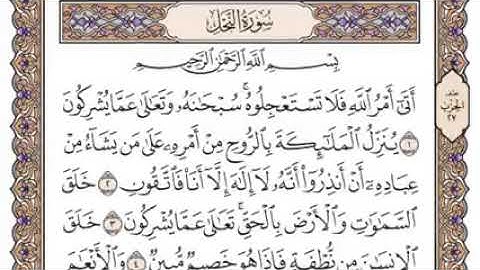 سُورَةُ النَّحۡلِ
بِسۡمِ ٱللَّهِ ٱلرَّحۡمَٰنِ ٱلرَّحِيمِ
أَتَىٰٓ أَمۡرُ ٱللَّهِ فَلَا تَسۡتَعۡجِلُوهُۚ سُبۡحَٰنَهُۥ وَتَعَٰلَىٰ عَمَّا يُشۡرِكُونَ
١ يُنَزِّلُ ٱلۡمَلَٰٓئِكَةَ بِٱلرُّوحِ مِنۡ أَمۡرِهِۦ عَلَىٰ مَن يَشَآءُ مِنۡ
عِبَادِهِۦٓ أَنۡ أَنذِرُوٓاْ أَنَّهُۥ لَآ إِلَٰهَ إِلَّآ أَنَا۠ فَٱتَّقُونِ ٢ خَلَقَ
ٱلسَّمَٰوَٰتِ وَٱلۡأَرۡضَ بِٱلۡحَقِّۚ تَعَٰلَىٰ عَمَّا يُشۡرِكُونَ ٣ خَلَقَ
ٱلۡإِنسَٰنَ مِن نُّطۡفَةٖ فَإِذَا هُوَ خَصِيمٞ مُّبِينٞ ٤ وَٱلۡأَنۡعَٰمَ
الحِزْب
٢٧